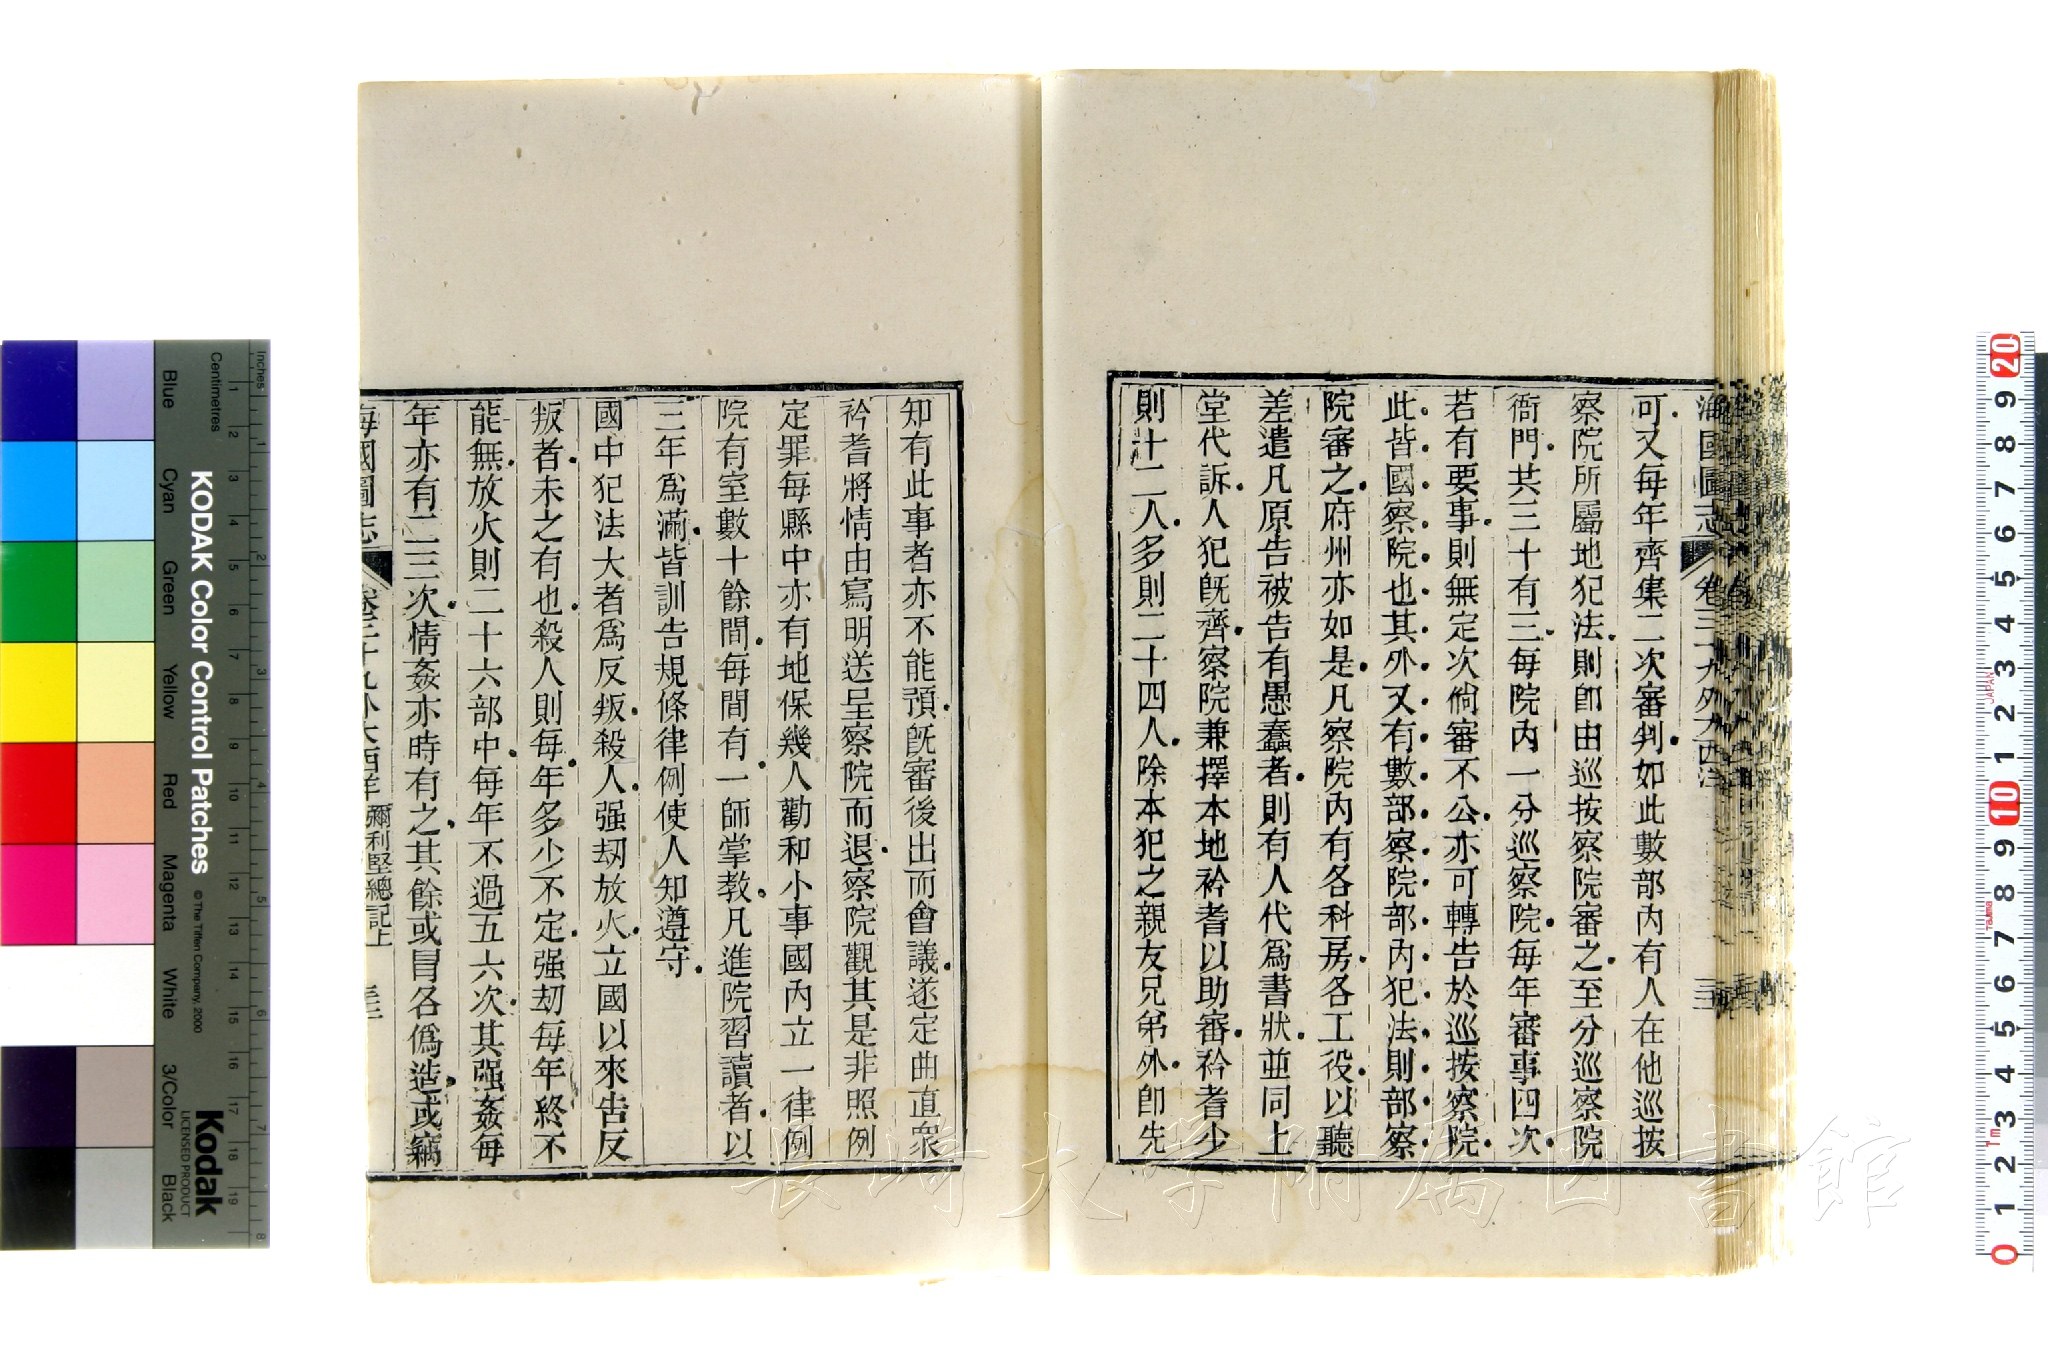 海國圖志 卷三十九外大西洋
可又每年齊集二次審判如此數部內有人在他巡按
察院所屬地犯法則卽由巡按察院審之至分巡察院
衙門共三十有三每院內一分巡察院每年審事四次
若有要事則無定次倘審不公亦可轉告於巡按察院
此皆國察院也其外又有數部察院部內犯法則部察
院審之府州亦如是凡察院內有各科房各工役以聽
差遣凡原告被告有愚蠢者則有人代爲書狀並同上
堂代訴人犯旣齊察院兼擇本地衿耆以助審衿耆少
則十二人多則二十四人除本犯之親友兄弟外卽先
知有此事者亦不能預旣審後出而會議遂定曲直衆
衿耆將情由寫明送呈察院而退察院觀其是非照例
定罪每縣中亦有地保幾人勸和小事國內立一律例
院有室數十餘間每間有一師掌教凡進院習讀者以
三年爲滿皆訓告規條律例使人知遵守
國中犯法大者爲反叛殺人强刧放火立國以來告反
叛者未之有也殺人則每年多少不定强刧每年終不
能無放火則二十六部中每年不過五六次其强姦每
年亦有二三次情姦亦時有之其餘或冒名僞造或竊
海國圖志 卷三十九外大西洋 彌利堅總記上 三三
KODAK Color Control Patches
© The Tiffen Company, 2000
Kodak
LICENSED PRODUCT
Inches
Centimetres
Blue
Cyan
Green
Yellow
Red
Magenta
White
3/Color
Black
JAPAN
Tajima
長崎大学附属図書館